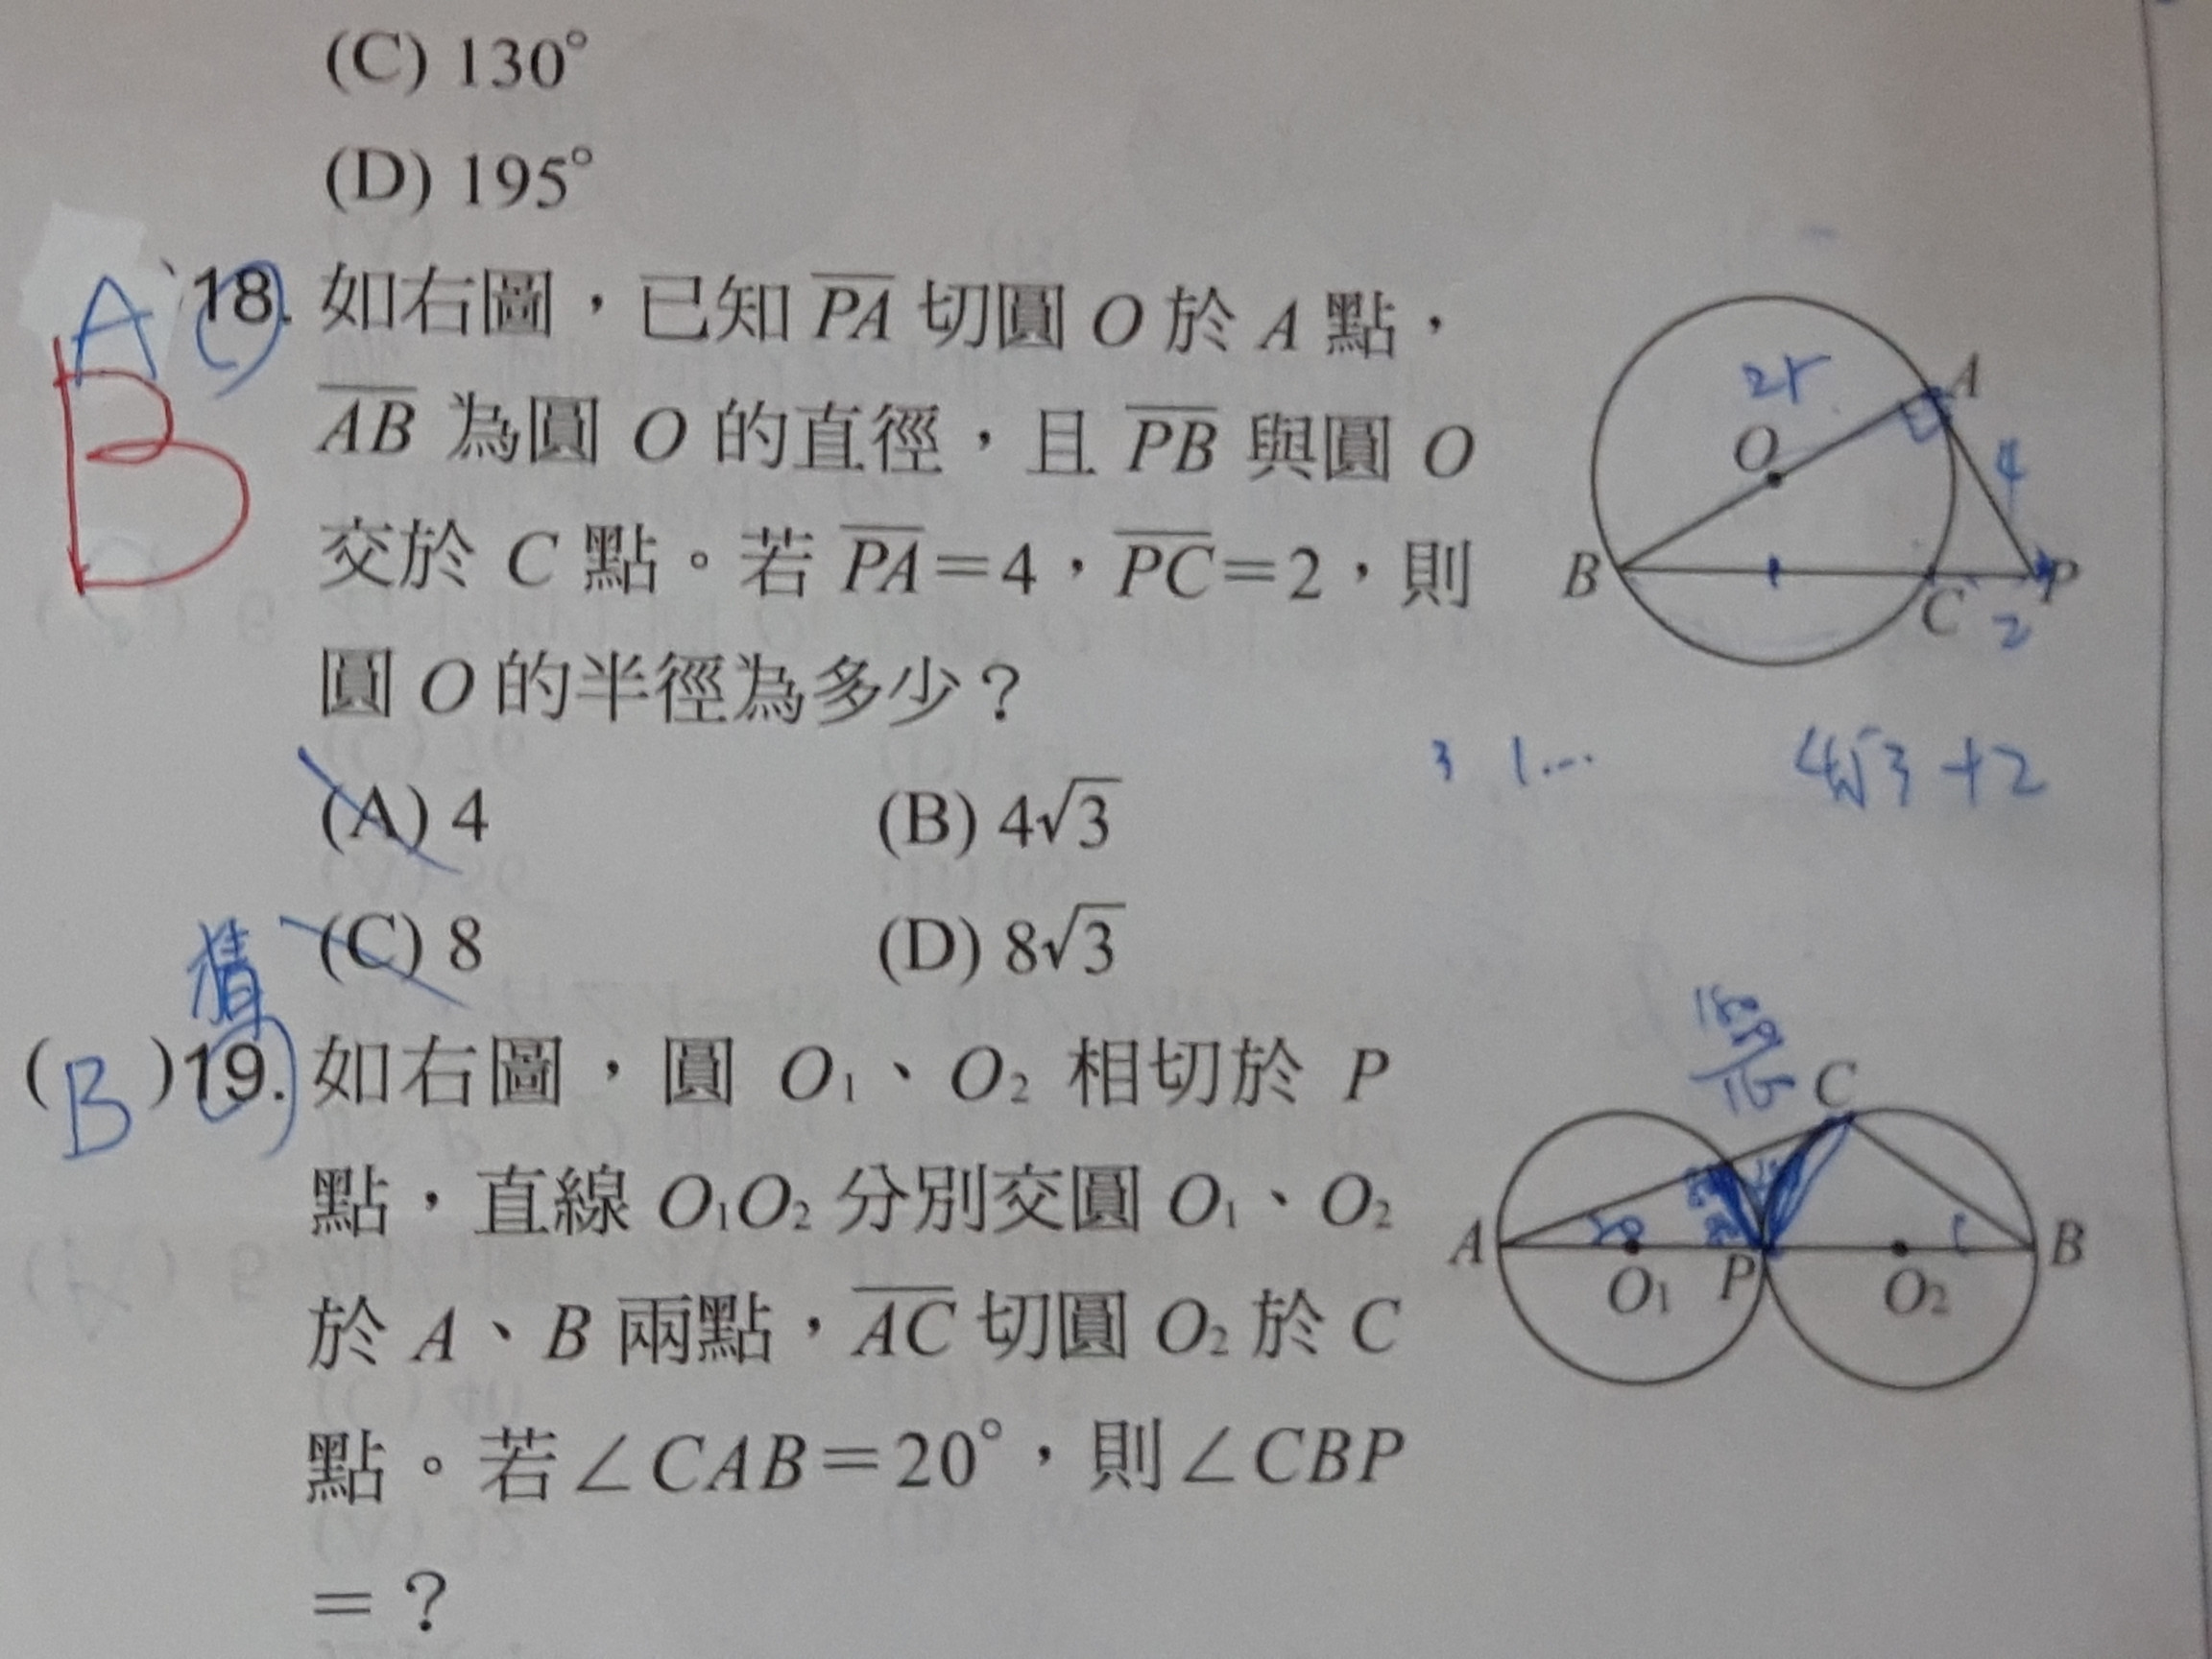 (C) 130°
(D) 195°
A 18. 如右圖，已知 PA 切圓 O 於 A 點，
B
AB 為圓 O 的直徑，且 PB 與圓 O
交於 C 點。若 PA=4，PC=2，則
圓 O 的半徑為多少？
(A) 4 (B) 4√3
(C) 8 (D) 8√3
2r
A
O
4
B
C
P
2
4√3+2
猜
(B)19. 如右圖，圓 O₁、O₂ 相切於 P
點，直線 O₁O₂ 分別交圓 O₁、O₂
於 A、B 兩點，AC 切圓 O₂ 於 C
點。若∠CAB=20°，則∠CBP
=？
C
A
O₁
P
O₂
B